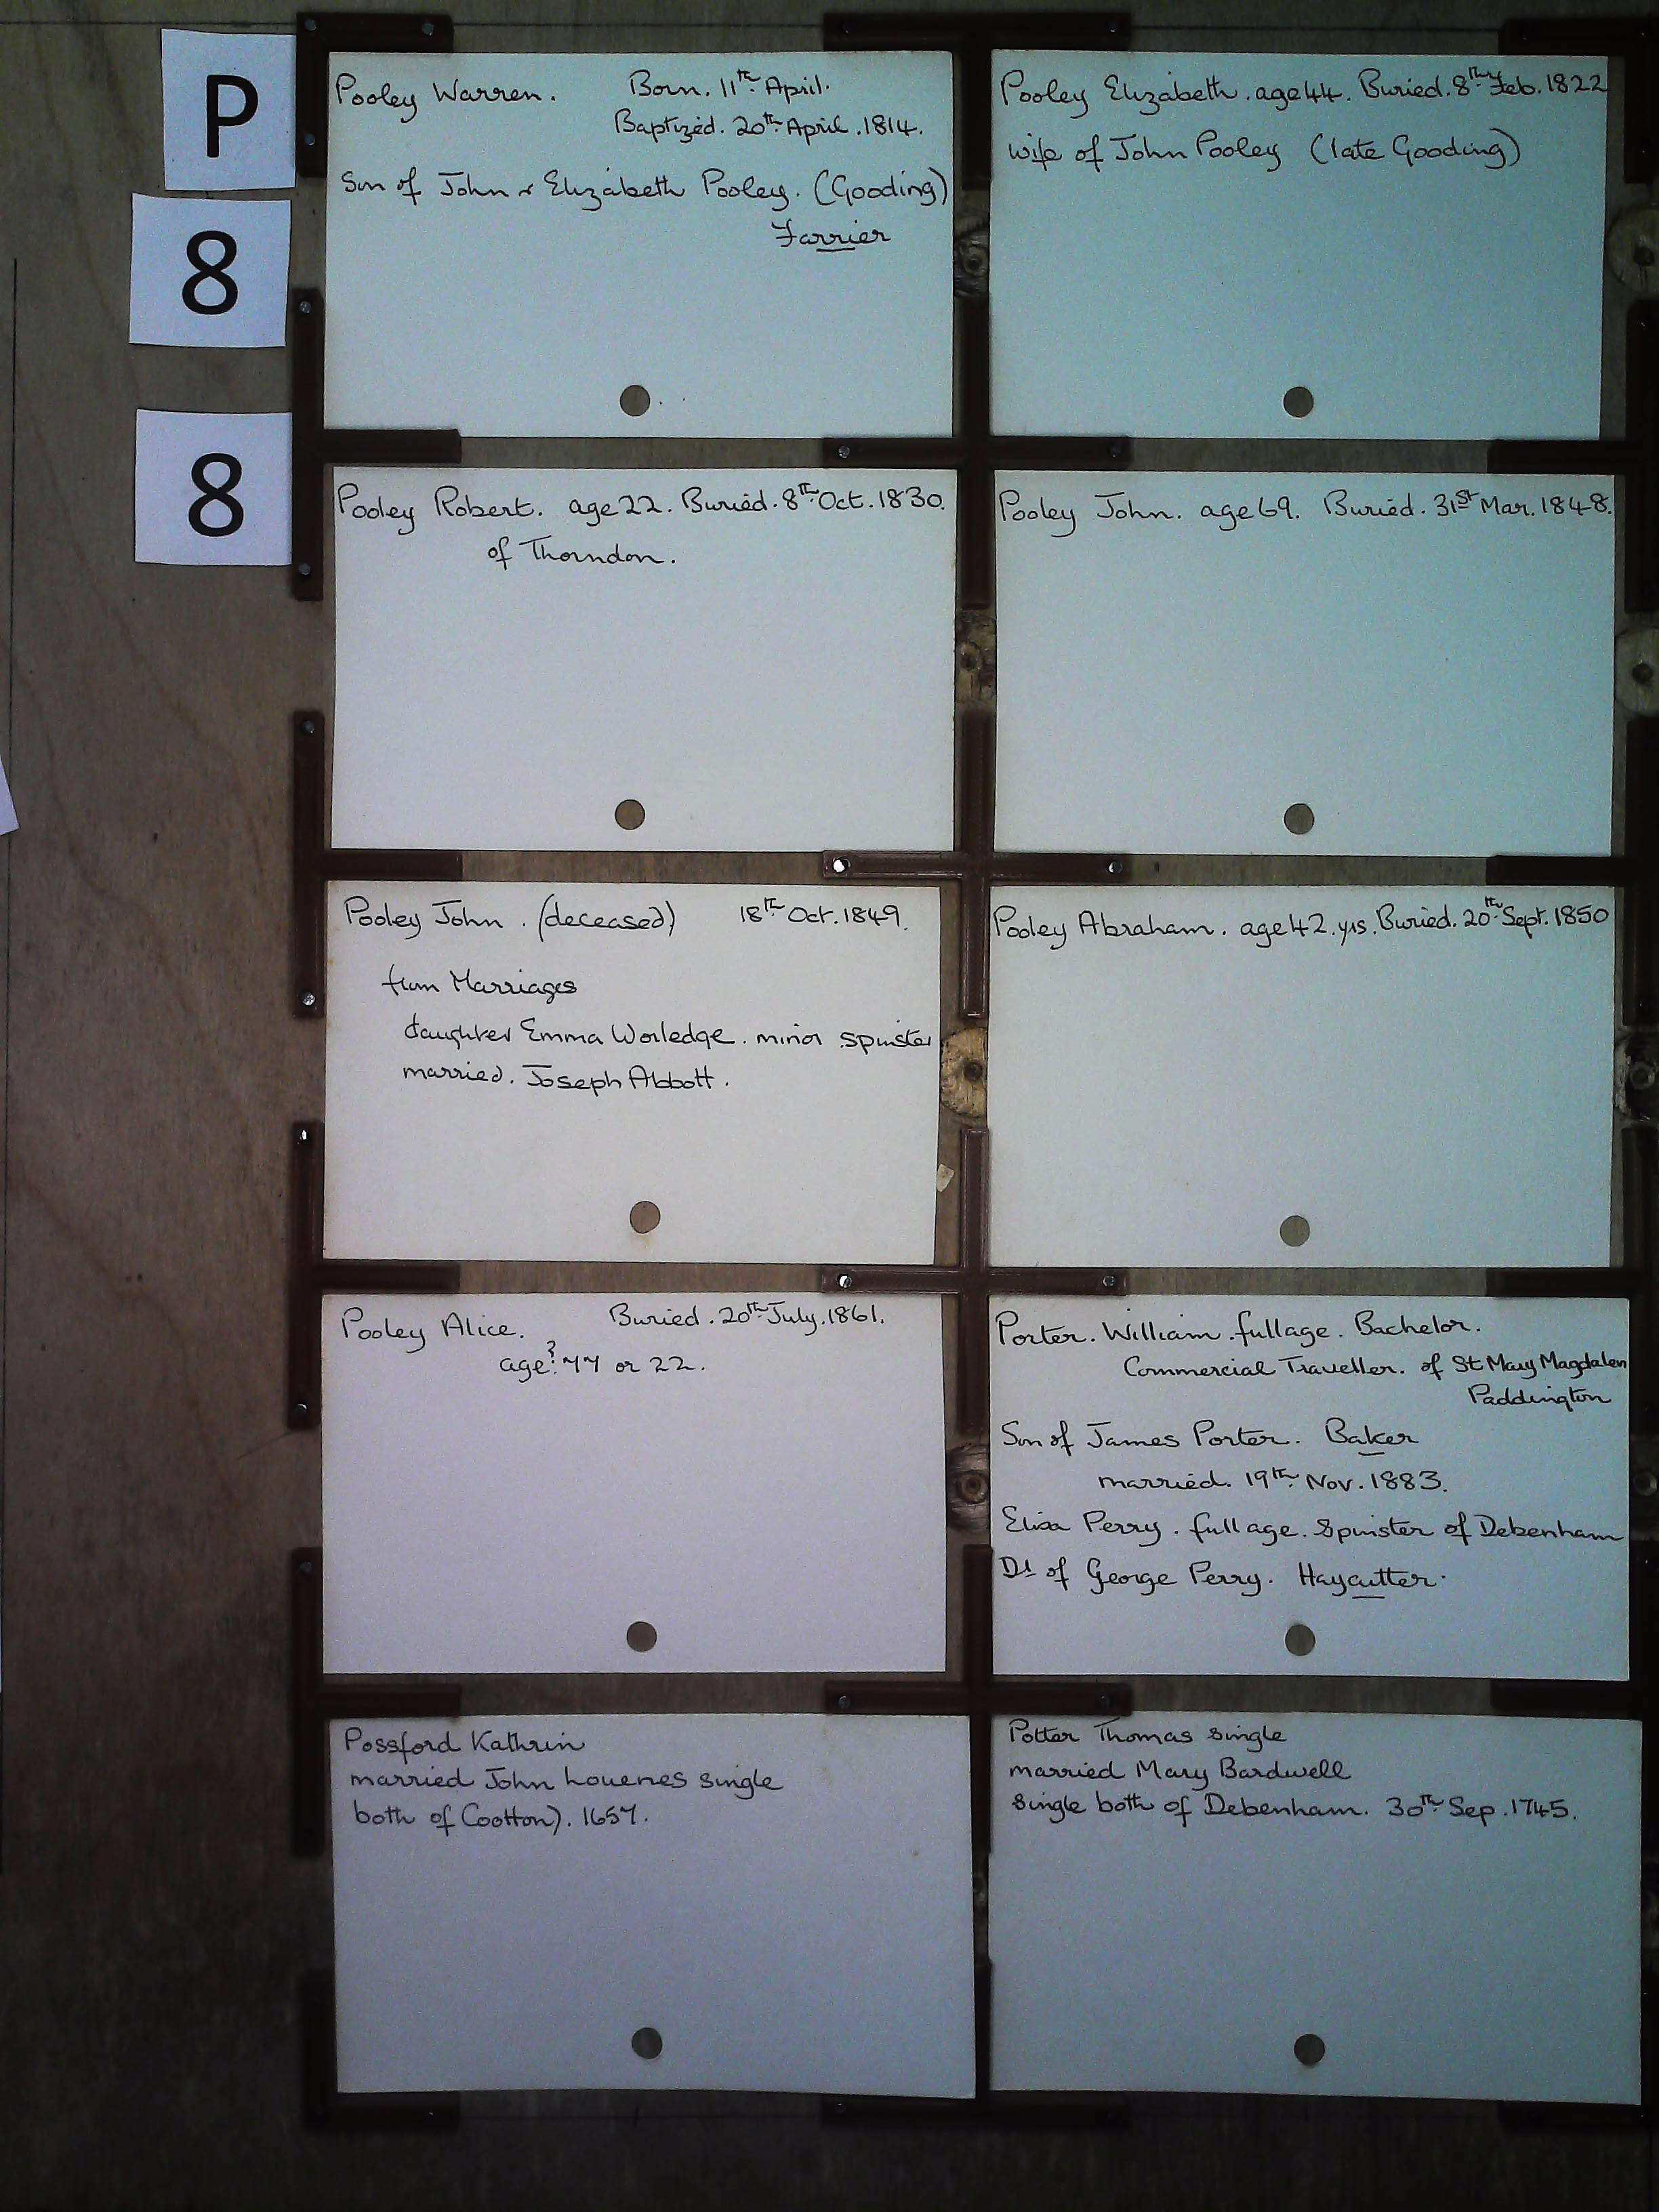 P
8
8
Pooley Warren. Born. 11th April.
Baptized. 20th April. 1814.
Son of John & Elizabeth Pooley. (Gooding)
Farrier
Pooley Elizabeth. age 44. Buried. 8th Feb. 1822
wife of John Pooley (late Gooding)
Pooley Robert. age 22. Buried. 8th Oct. 1830.
of Thorndon.
Pooley John. age 69. Buried. 31st Mar. 1848.
Pooley John. (deceased) 18th Oct. 1849.
from Marriages
daughter Emma Worledge. minor spinster
married. Joseph Abbott.
Pooley Abraham. age 42. yrs. Buried. 20th Sept. 1850
Pooley Alice. Buried. 20th July. 1861.
age? 77 or 22.
Porter. William. full age. Bachelor.
Commercial Traveller. of St Mary Magdalen
Paddington
Son of James Porter. Baker
married. 19th Nov. 1883.
Eliza Perry. full age. Spinster of Debenham
Dt of George Perry. Haycutter.
Possford Kathrin
married John Louenes single
both of Cootton). 1657.
Potter Thomas single
married Mary Bardwell
single both of Debenham. 30th Sep. 1745.